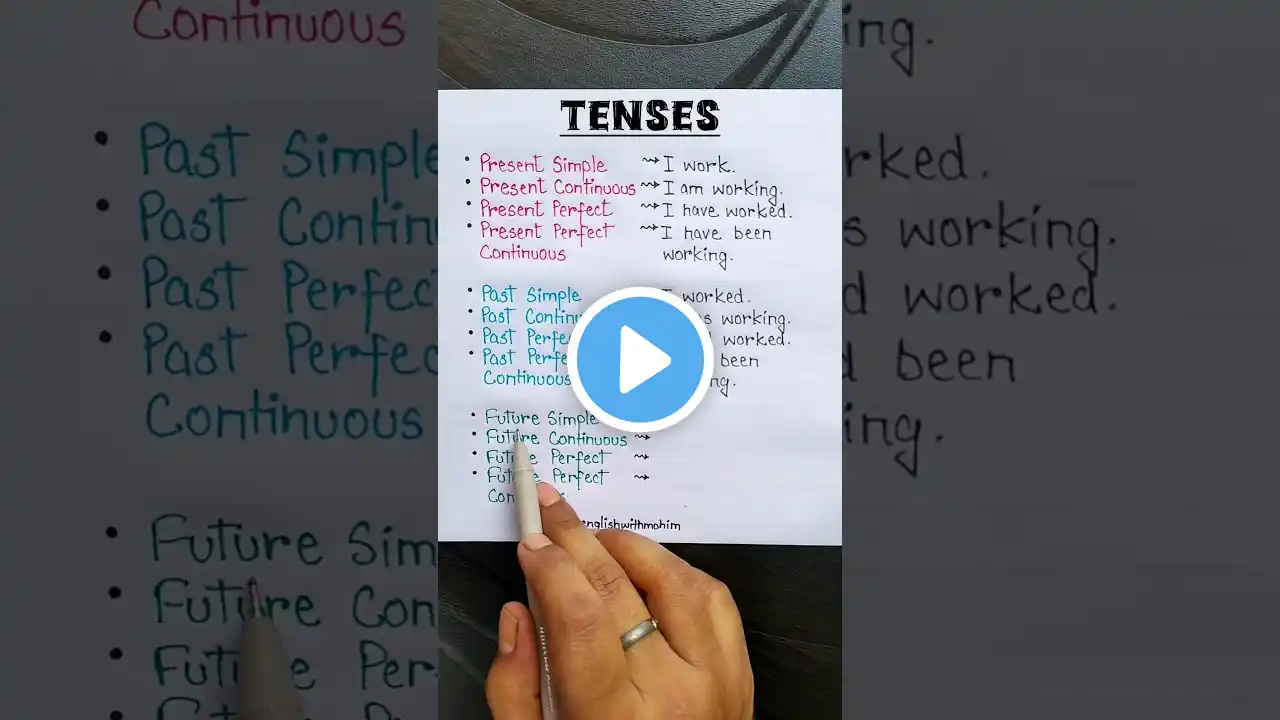 TENSES
• Present Simple ⇝ I work.
• Present Continuous ⇝ I am working.
• Present Perfect ⇝ I have worked.
• Present Perfect ⇝ I have been
Continuous working.
• Past Simple I worked.
• Past working.
• Past worked.
• Past been
Continuous
• Future Simple
• Future Continuous ⇝
• Future Perfect ⇝
• Future Perfect ⇝
englishwithmohim